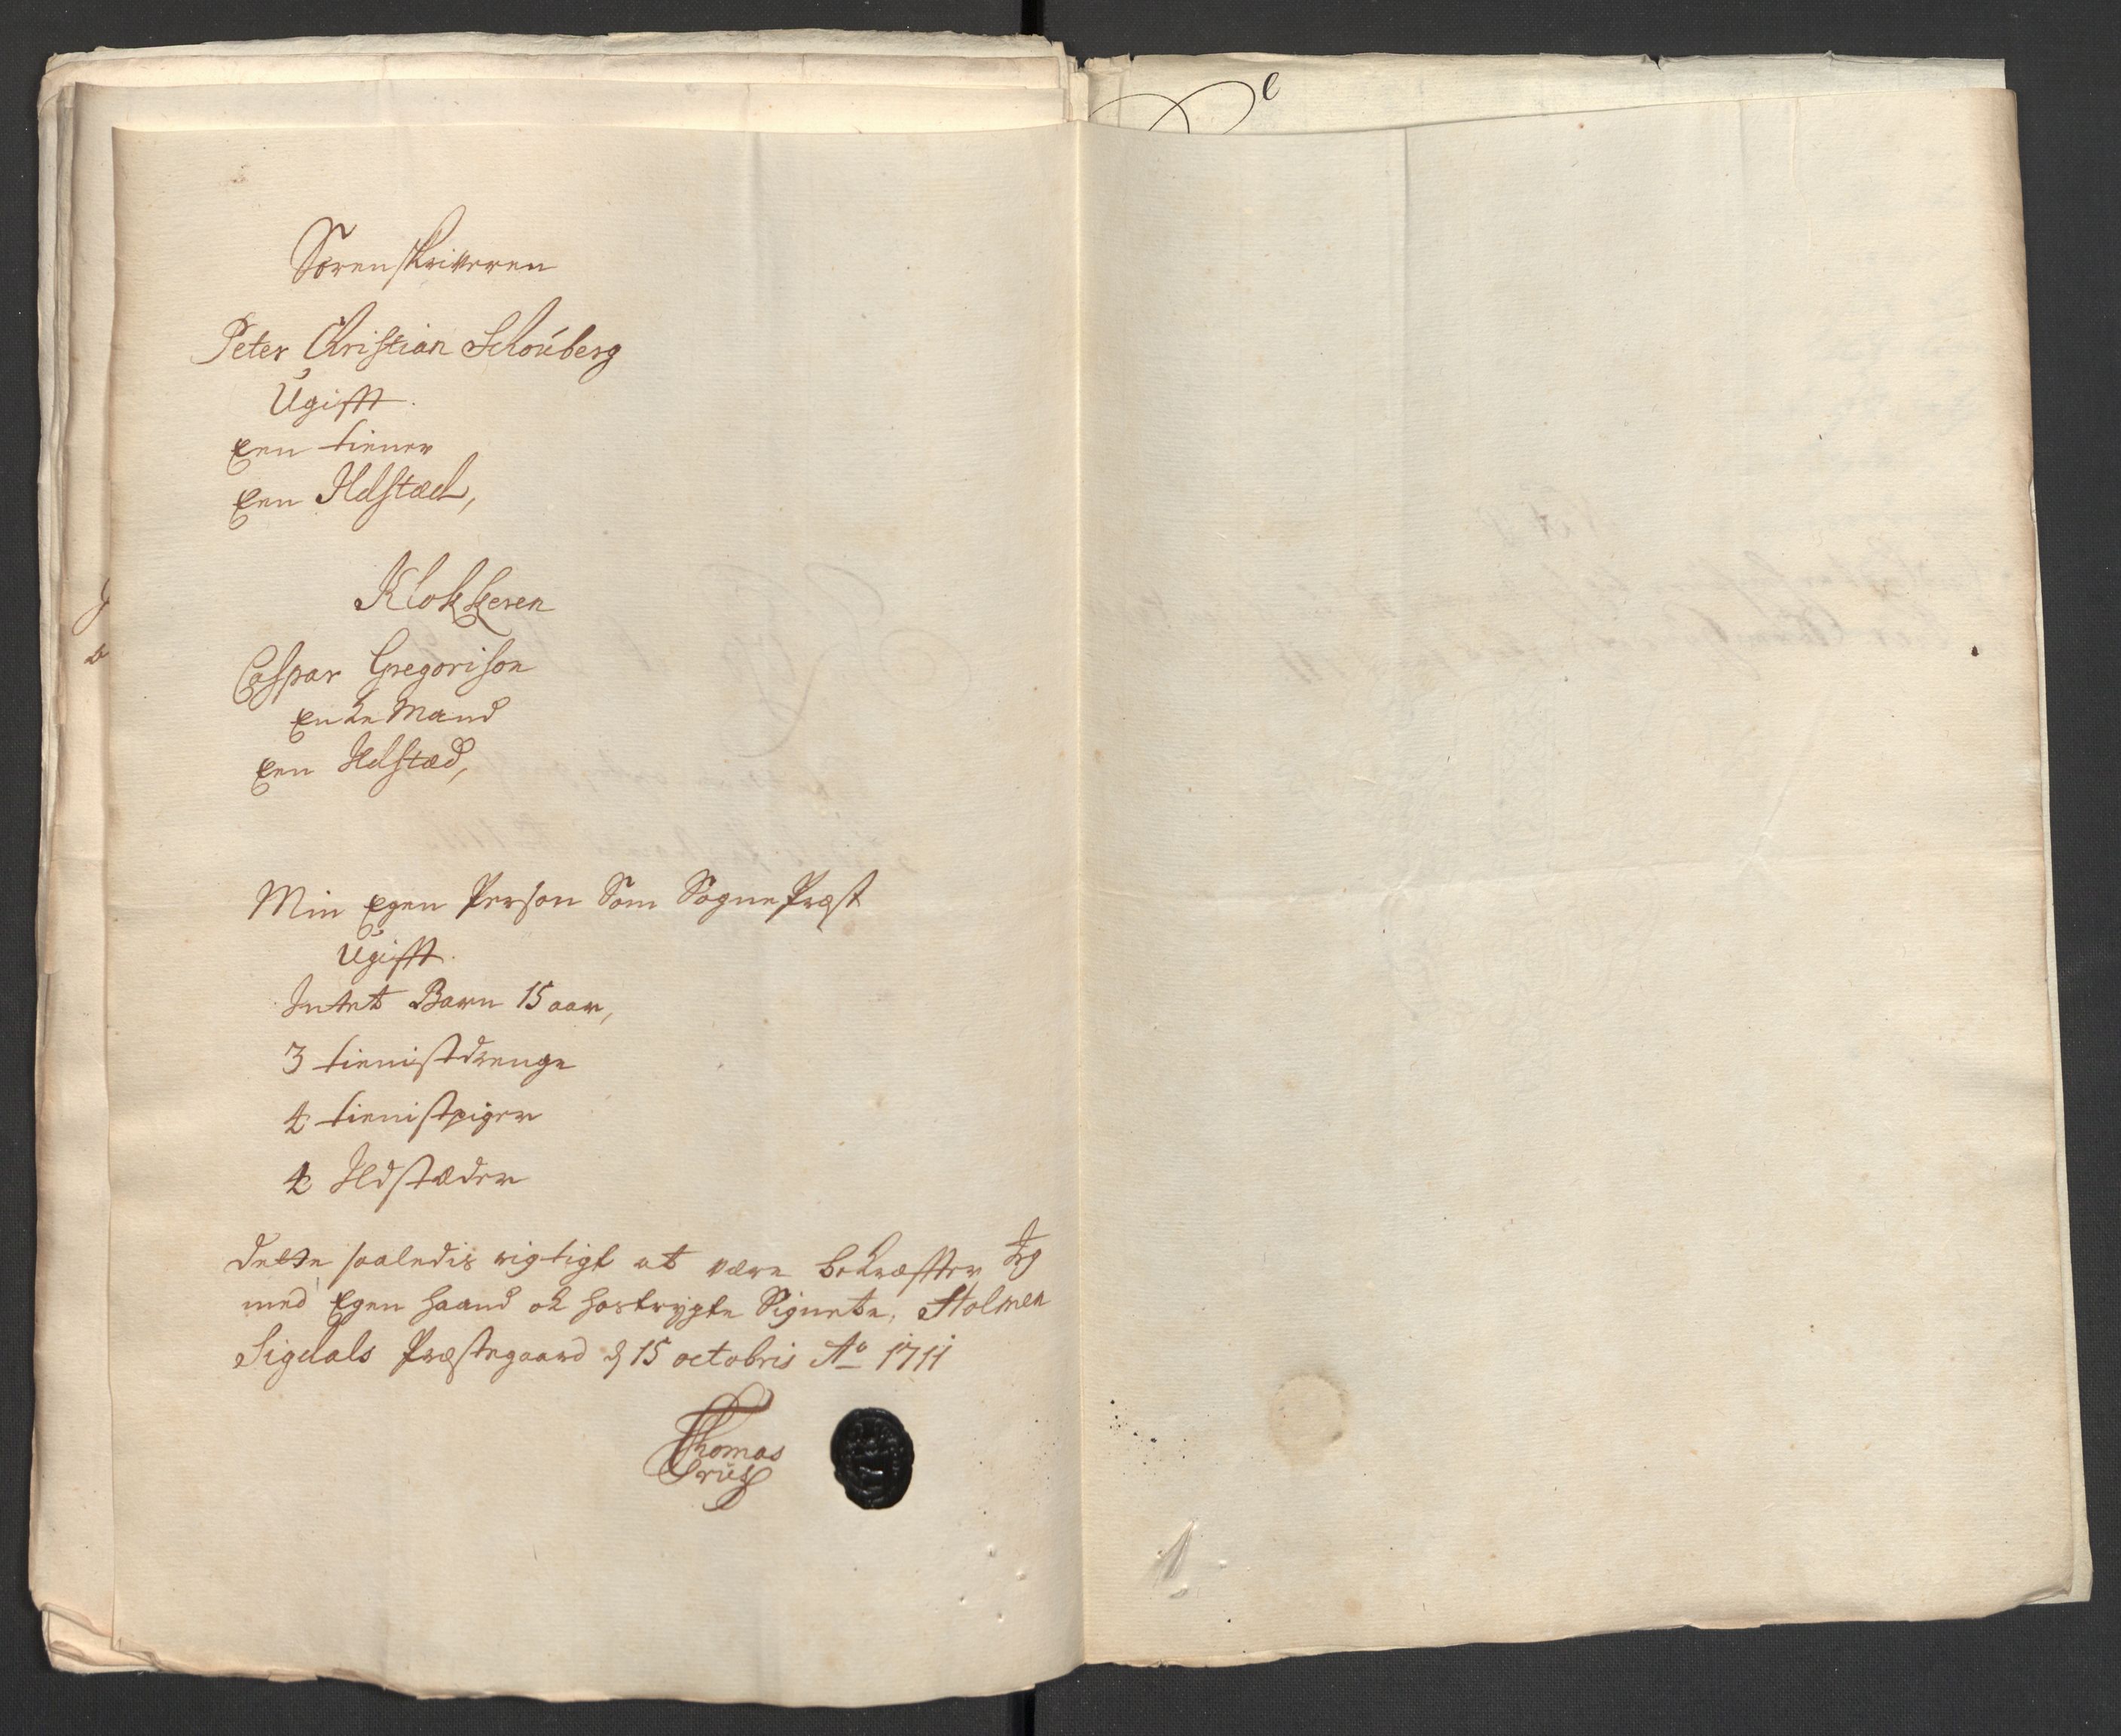 Sorenskriveren
Peter Christian Schouberg
Ugifft.
Een tiener
Een Ildstæd,
Klokkeren
Caspar Gregorison
Enke Mand
Een Ildstæd,
Min Egen Person Som Sogne Præst
Ugifft.
Intet Barn 15 aar,
3 tienistdrenge
4 tienistpiger
4 Ildstæder
Dette saaledis rigtigt at være bekræffter Jeg
med Egen haand ok hostrygte Signete, Holmen
Sigdals Præstegaard d 15 octobris Ao 1711
Thomas